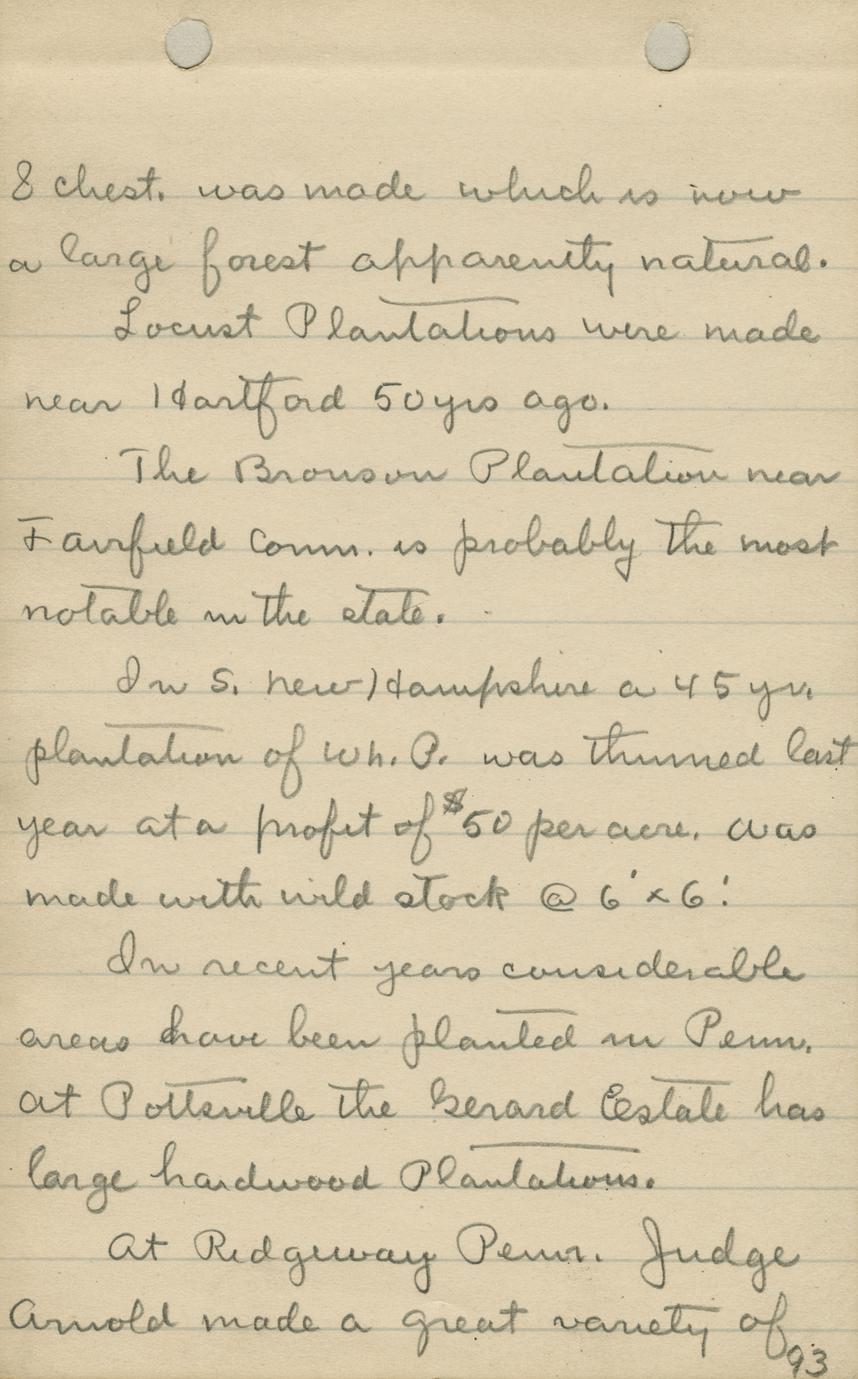 & chest. was made which is now
a large forest apparently natural.
Locust Plantations were made
near Hartford 50 yrs ago.
The Bronson Plantation near
Fairfield Conn. is probably the most
notable in the state.
In S. New Hampshire a 45 yr.
plantation of Wh. P. was thinned last
year at a profit of $50 per acre. Was
made with wild stock @ 6' x 6'.
In recent years considerable
areas have been planted in Penn.
At Pottsville the Gerard Estate has
large hardwood Plantations.
At Ridgeway Penn. Judge
Arnold made a great variety of
93